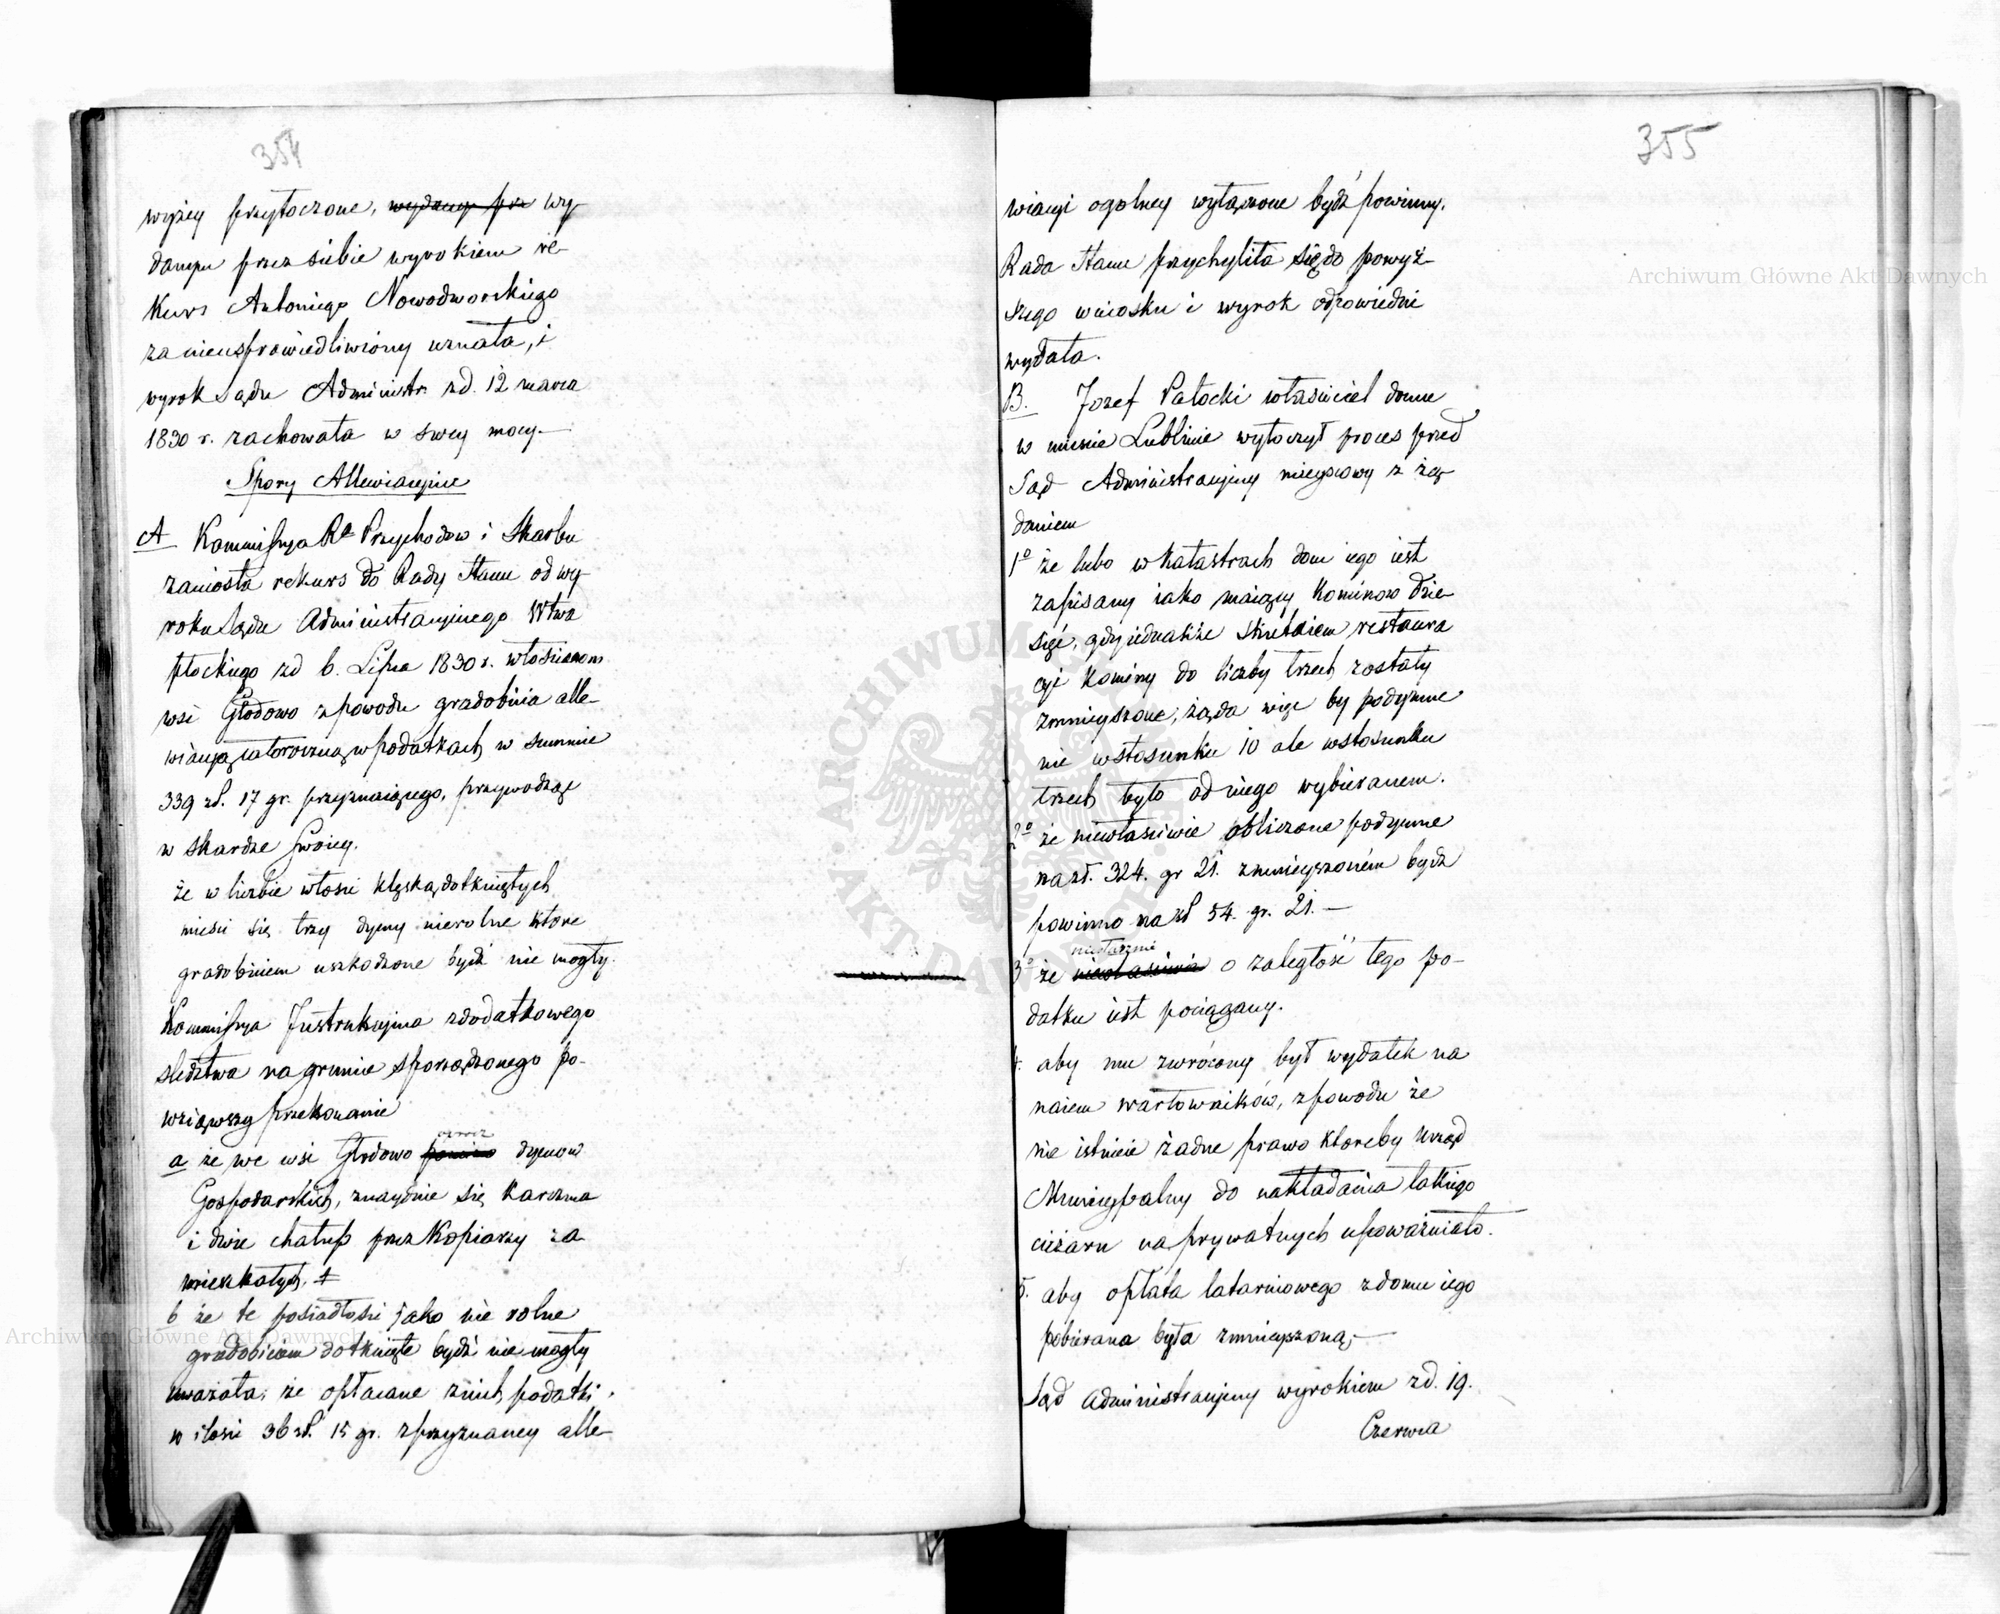 354
wyżey przytoczone, wydanym prz wy-
danym przez siebie wyrokiem re-
kurs Antoniego Nowodworskiego
za nieusprawiedliwiony uznała, i
wyrok Sądu Administr. zd. 12 marca
1830 r. zachowała w swey mocy.—
Spory Allewiacyjne
A Kommissya Ra Przychodow i Skarbu
zaniosła rekurs do Rady Stanu od wy-
roku Sądu Administracyjnego Wtwa
płockiego zd 6. Lipca 1830 r. włościanom
wsi Głodowo z powodu gradobicia alle-
wiacyą całoroczną w podatkach w summie
339 zł. 17 gr. przyznaiącego, przywodząc
w skardze swoiey.
że w liczbie włosci klęską dotkniętych
miesci się trzy dymy nierolne ktore
gradobiciem uszkodzone bydź nie mogły.
Kommissya Instrukcyjna z dodatkowego
sledztwa na gruncie sporządzonego po-
wziąwszy przekonanie
a że we wsi Głodowo oprocz dymow
Gospodarskich, znayduie się karczma
i dwie chałup przez Kopiarzy za
mieszkałych, +
b że te posiadłosci jako nie rolne
gradobiciem dotknięte bydź nie mogły
uważała, że opłacane z nich podatki
w ilosci 36 zł. 15 gr. z przyznaney alle-
355
wiacyi ogolney wyłączone bydź powinny.
Rada Stanu przychyliła się do powyż-
szego wniosku i wyrok odpowiedni
wydała.
B. Jozef Pałocki własciciel domu
w miescie Lublinie wytoczył proces przed
Sąd Administracyjny mieyscowy z żą-
daniem
1º że lubo w Katastrach dom iego iest
zapisany iako maiący Kominow dzie-
sięć, gdy iednakże skutkiem restaura
cyi kominy do liczby trzech zostały
zmnieyszone, żąda więc by podymne
nie w stosunku 10 ale w stosunku
trzech było od niego wybieranem.
2º że niewłasciwie obliczone podymne
na zł. 324. gr 21. zmnieyszoném bydz
powinno na zł 54. gr. 21.—
niesłusznie
3º że niewłasciwie o zaległość tego po-
datku iest pociągany.
4. aby mu zwrócony był wydatek na
naiem wartowników, z powodu że
nie istnieie żadne prawo ktoreby Urząd
Municypalny do nakładania takiego
ciężaru na prywatnych upoważniało.
5. aby opłata latarniowego z domu iego
pobierana była zmnieyszoną.—
Sąd Administracyjny wyrokiem zd. 19.
Czerwca
Archiwum Główne Akt Dawnych
Archiwum Główne Akt Dawnych
ARCHIWUM GŁÓWNE AKT DAWNYCH